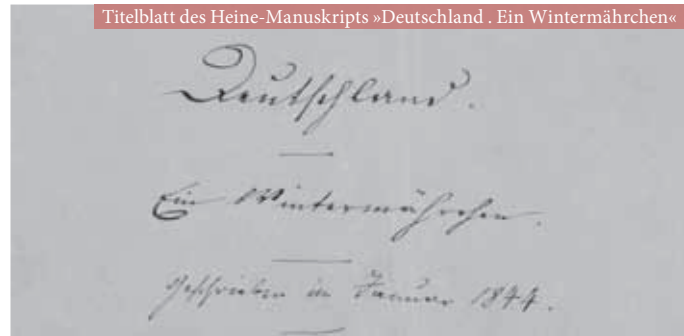 Titelblatt des Heine-Manuskripts »Deutschland . Ein Wintermährchen«
Deutschland.
Ein Wintermährchen.
Geschrieben im Januar 1844.